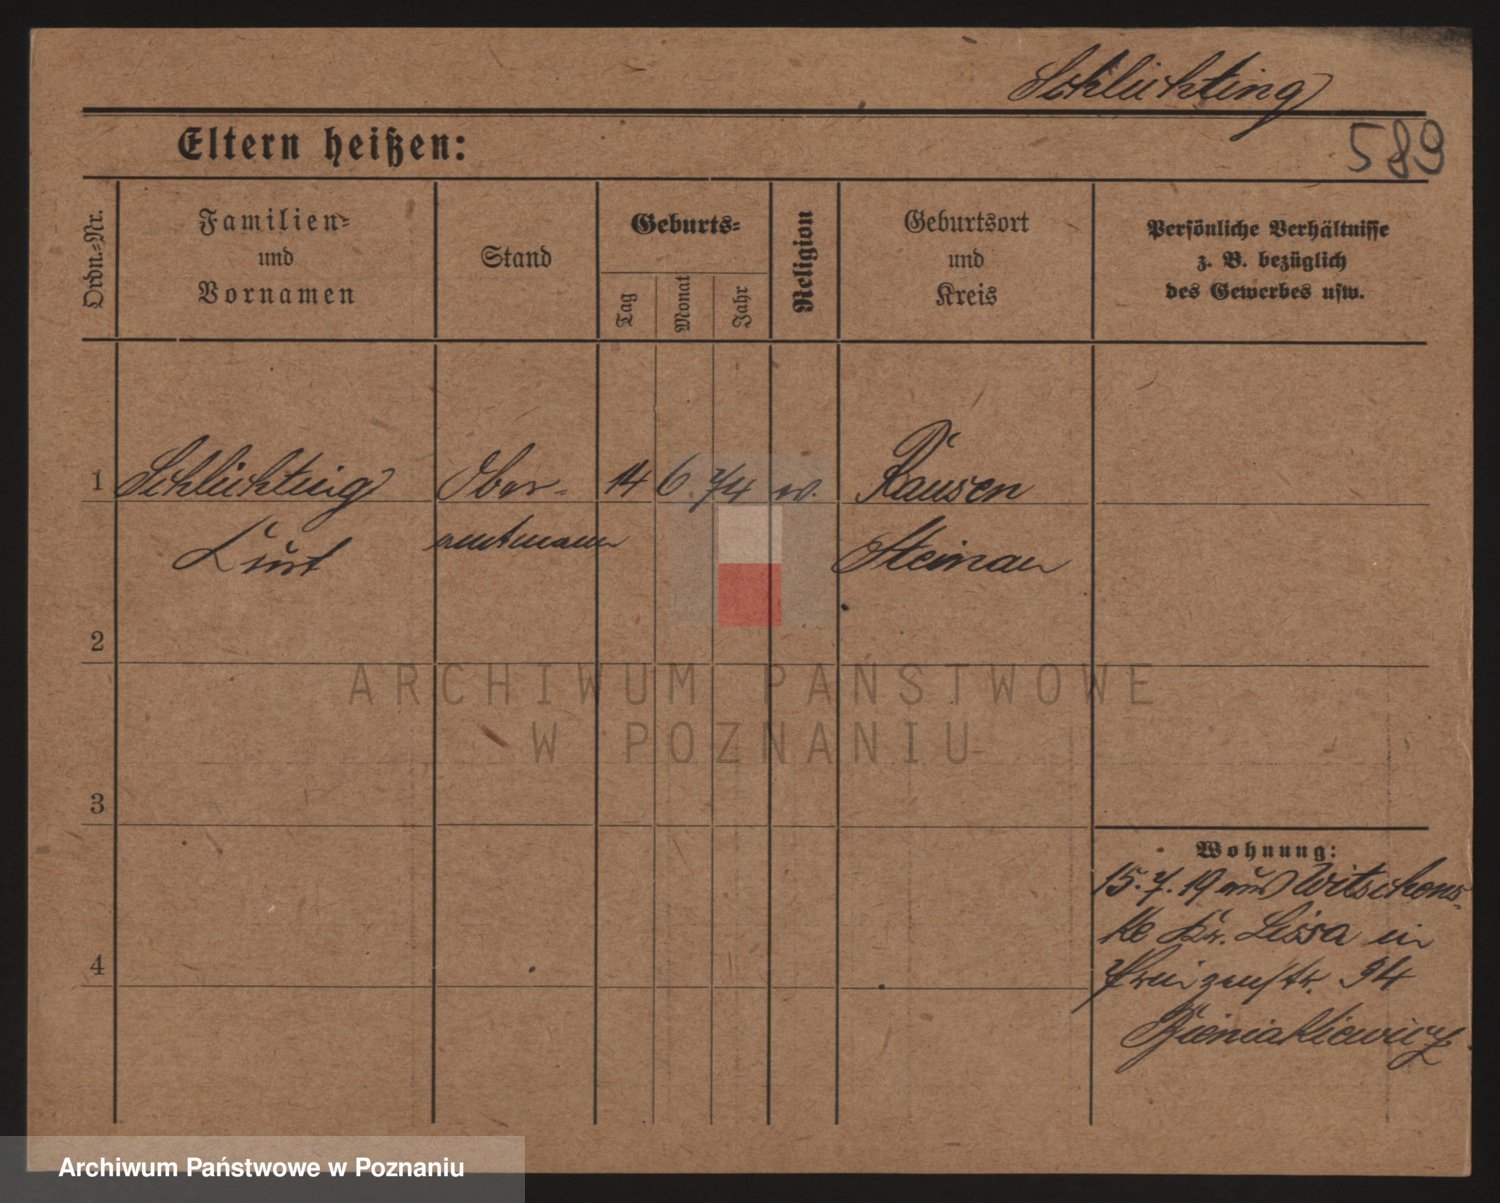 Schlichting
589
Eltern heißen:
Ordn.-Nr.
Familien-
und
Vornamen
Stand
Geburts-
Tag
Monat
Jahr
Religion
Geburtsort
und
Kreis
Persönliche Verhältnisse
z. B. bezüglich
des Gewerbes usw.
1 Schlichting Ober- 14 6. 74 ev. Rausen
Kurt amtmann Steinau
2
3
4
Wohnung:
15.7.19 aus
Kr. Lissa in
Prinzenstr. 94
Bieniakiewicz
ARCHIWUM PAŃSTWOWE
W POZNANIU
Archiwum Państwowe w Poznaniu